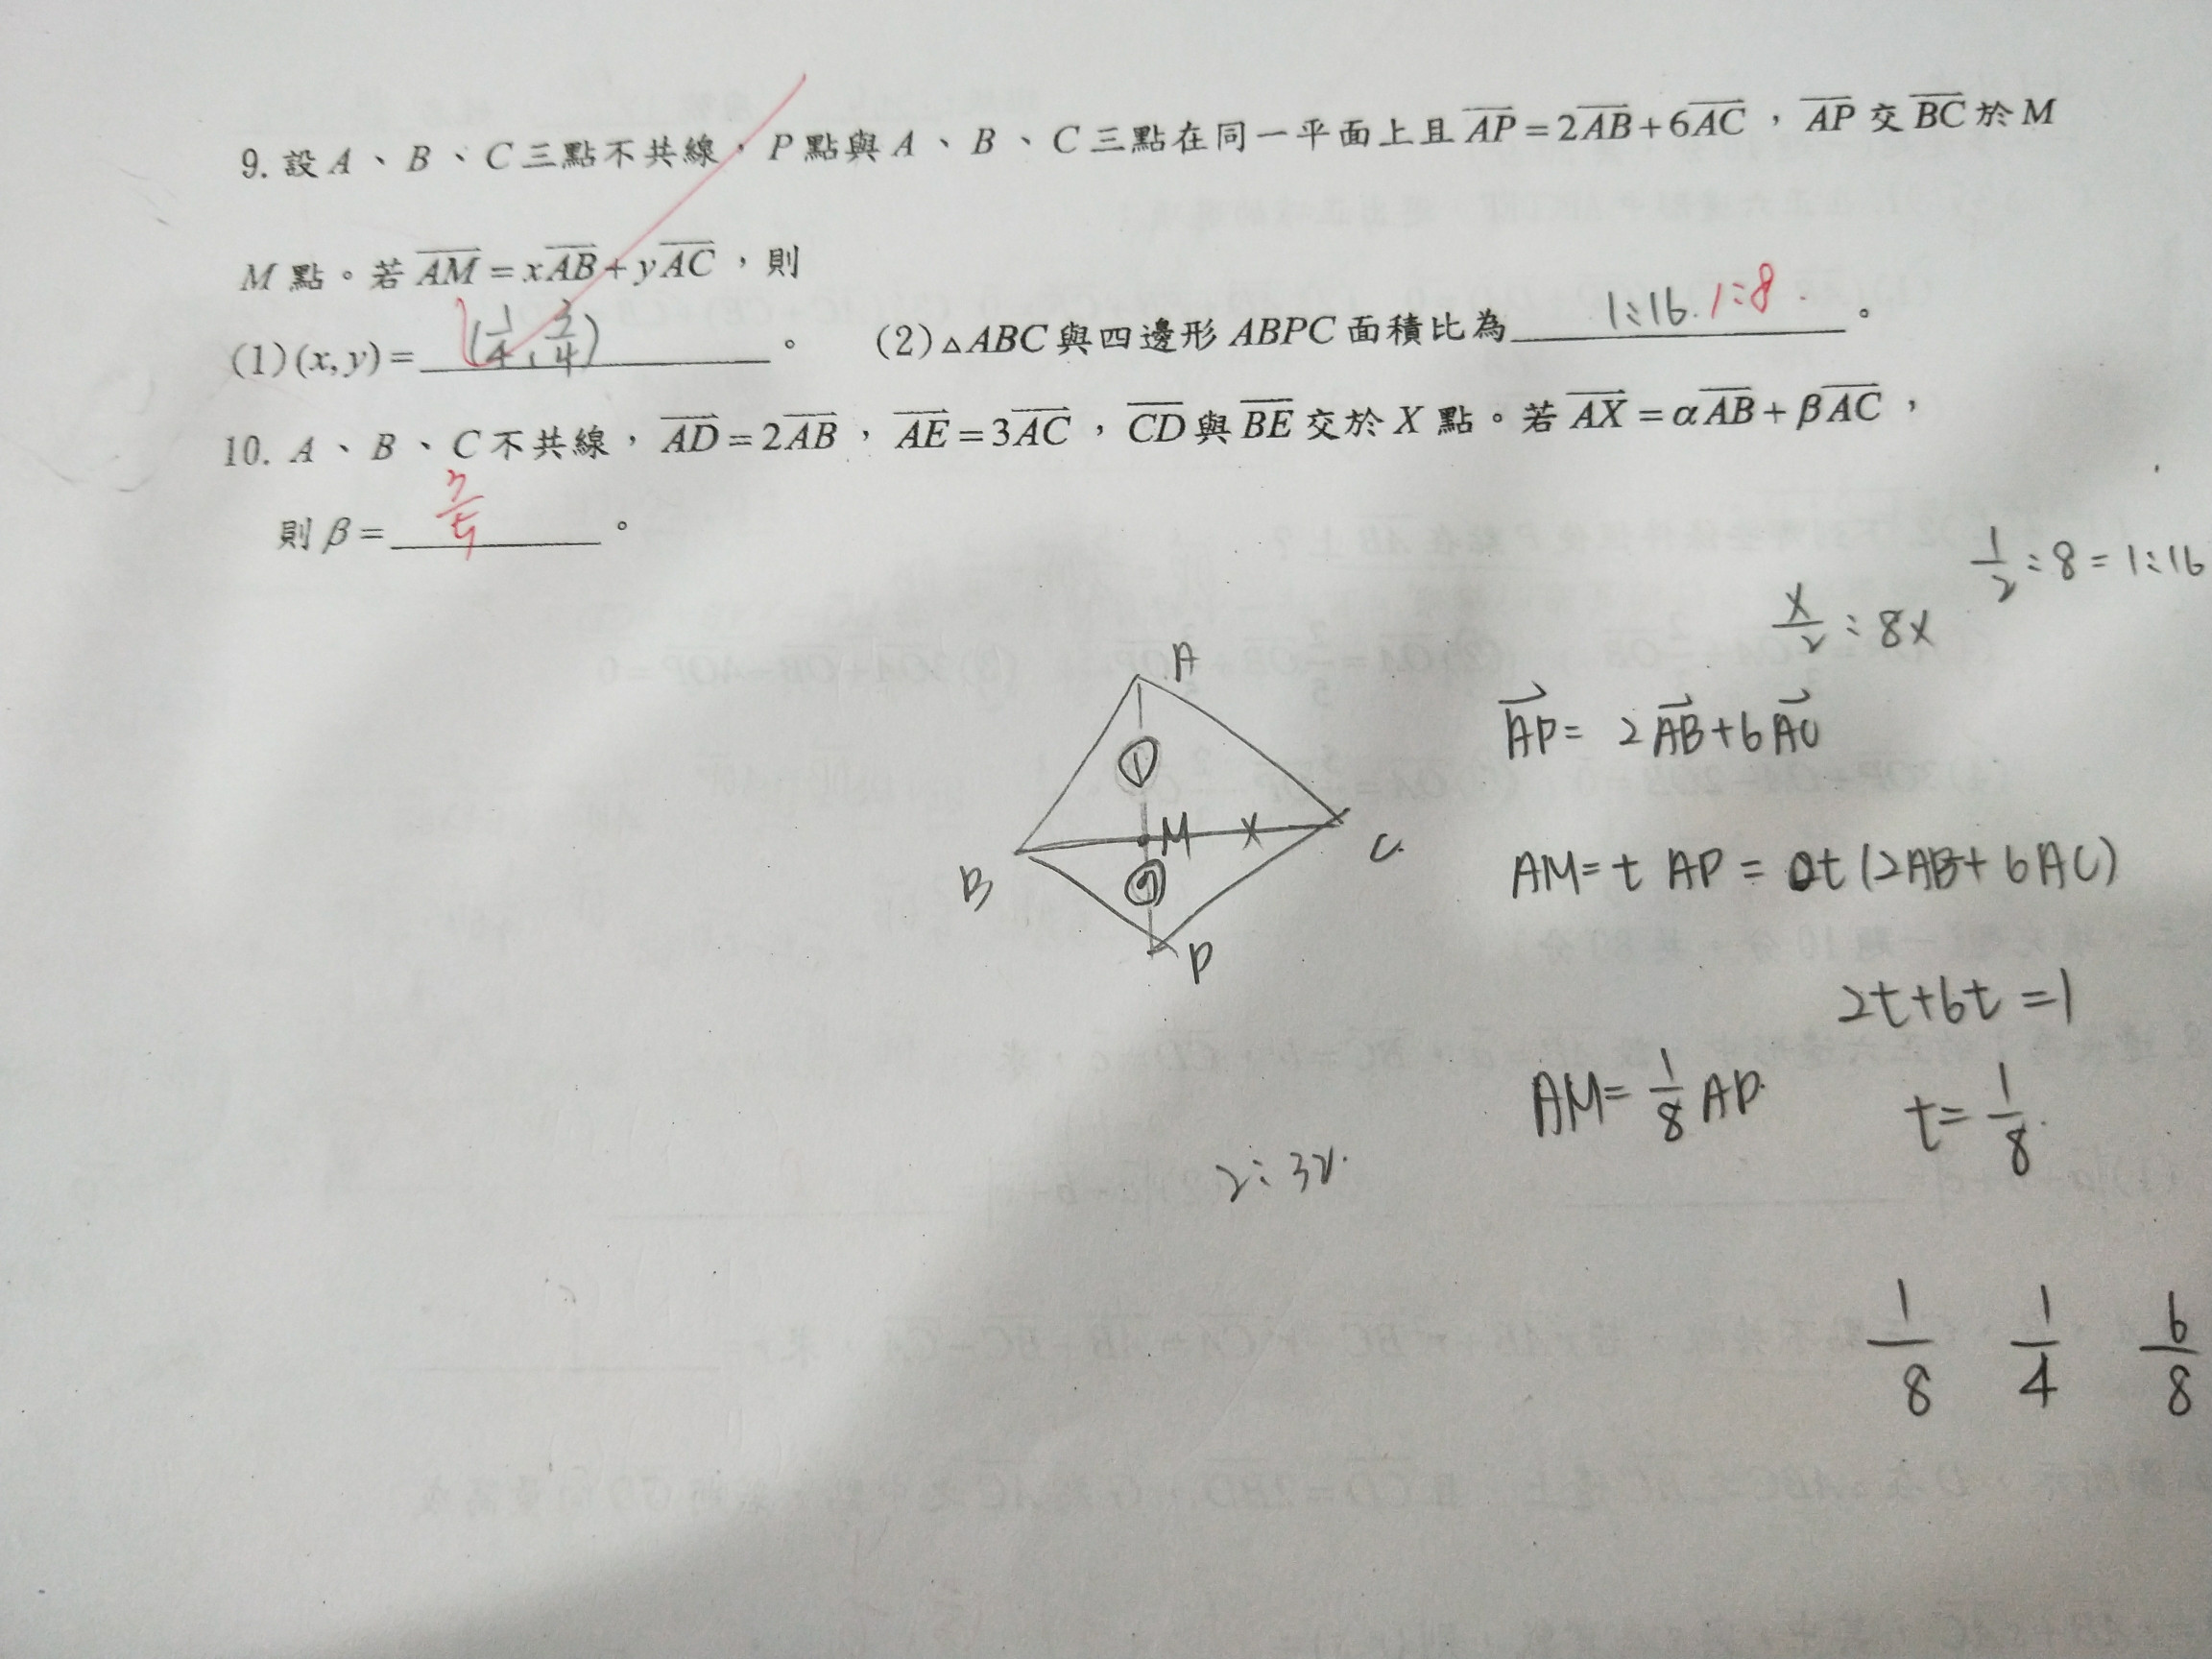 9. 設 A、B、C 三點不共線,P 點與 A、B、C 三點在同一平面上且 AP = 2AB + 6AC,AP 交 BC 於 M
M 點。若 AM = xAB + yAC,則
(1)(x, y) = (1/4, 3/4)。 (2)△ABC 與四邊形 ABPC 面積比為 1:16. 1:8.。
10. A、B、C 不共線,AD = 2AB,AE = 3AC,CD 與 BE 交於 X 點。若 AX = αAB + βAC,
則 β = 3/5。
1/2 : 8 = 1:16
x/2 : 8x
A
AP = 2AB + 6AC
1
M x
C.
B
7
AM = t AP = t(2AB + 6AC)
P
2t + 6t = 1
AM = 1/8 AP.
t = 1/8.
2:32.
1/8 1/4 6/8